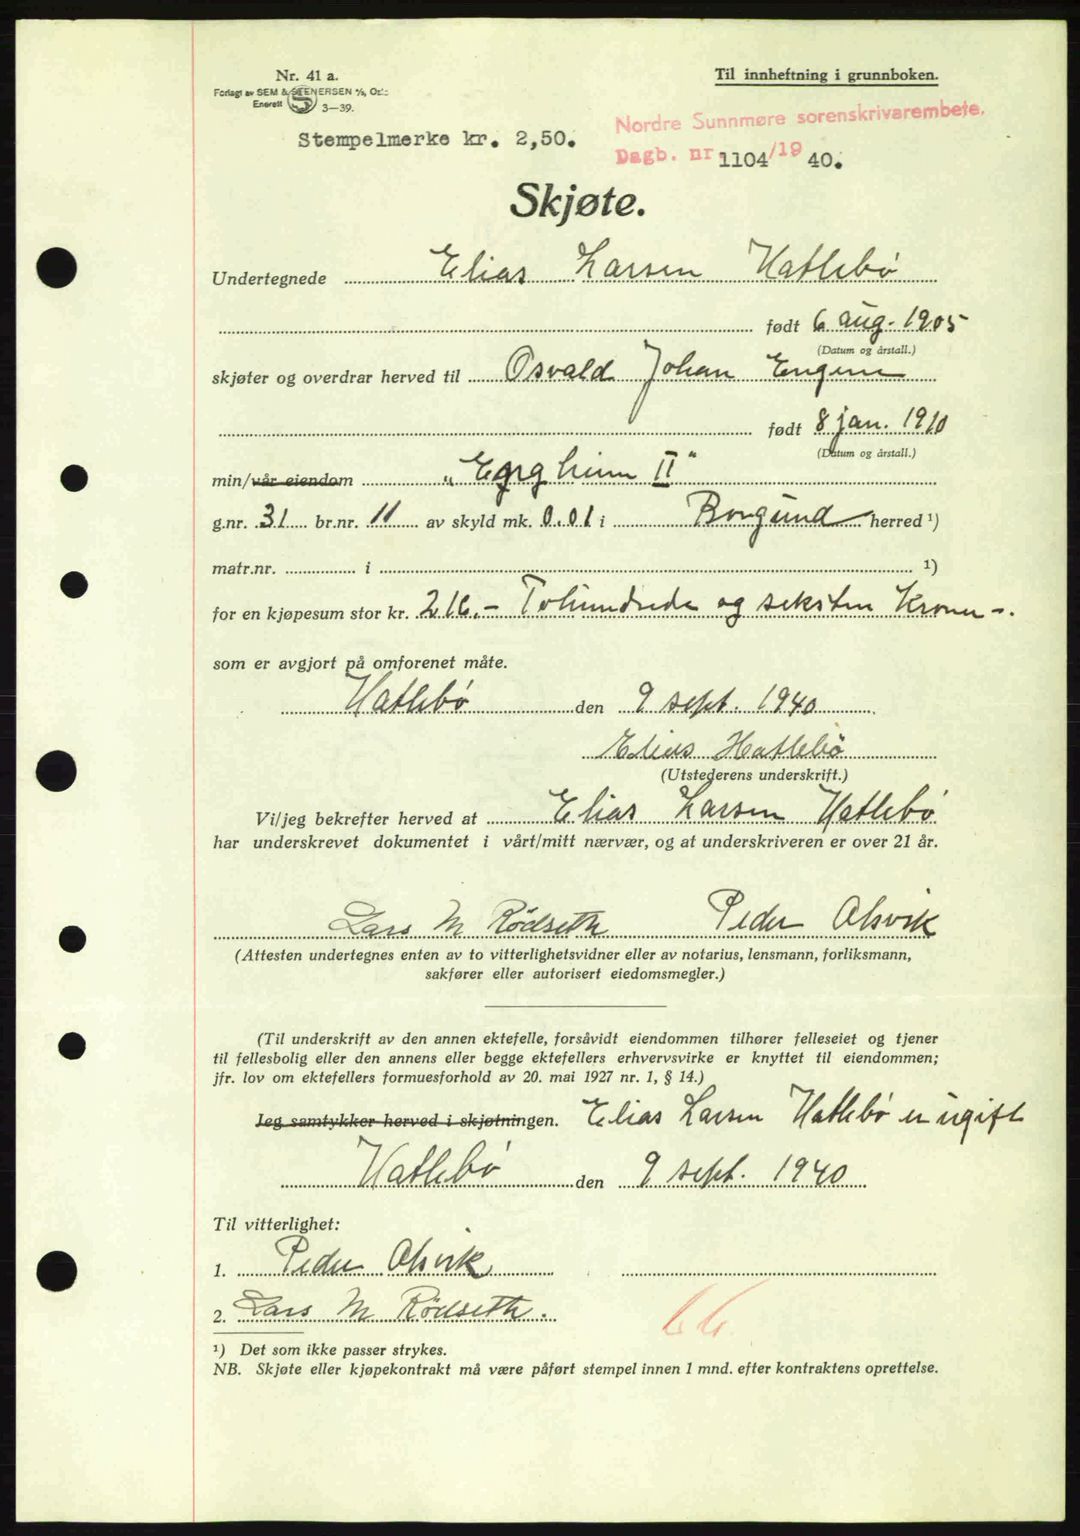 Nr. 41 a.
Forlagt av SEM & STENERSEN A/S, Oslo
Enerett S 3—39.
Til innheftning i grunnboken.
Stempelmerke kr. 2,50.
Nordre Sunnmøre sorenskrivarembete.
Dagb. nr 1104/1940.
Skjøte.
Undertegnede Elias Larsen Hatlebø
født 6 aug. 1905
(Datum og årstall.)
skjøter og overdrar herved til Osvald Johan
født 8 jan. 1910
(Datum og årstall.)
min/vår eiendom II"
g.nr. 31 br.nr. 11 av skyld mk. 0.01 i Borgund herred ¹)
matr.nr. i ¹)
for en kjøpesum stor kr. 216.- Tohundrede og seksten Kroner -.
som er avgjort på omforenet måte.
Hatlebø den 9 sept. 1940
Elias Hatlebø
(Utstederens underskrift.)
Vi/jeg bekrefter herved at Elias Larsen Hatlebø
har underskrevet dokumentet i vårt/mitt nærvær, og at underskriveren er over 21 år.
Lars M Rødseth Peder Alsvik
(Attesten undertegnes enten av to vitterlighetsvidner eller av notarius, lensmann, forliksmann,
sakfører eller autorisert eiedomsmegler.)
(Til underskrift av den annen ektefelle, forsåvidt eiendommen tilhører felleseiet og tjener
til fellesbolig eller den annens eller begge ektefellers erhvervsvirke er knyttet til eiendommen;
jfr. lov om ektefellers formuesforhold av 20. mai 1927 nr. 1, § 14.)
Jeg samtykker herved i skjøtningen. Elias Larsen Hatlebø er ugift
Hatlebø den 9 sept. 1940
Til vitterlighet:
1. Peder Alsvik
2. Lars M Rødseth.
66
¹) Det som ikke passer strykes.
NB. Skjøte eller kjøpekontrakt må være påført stempel innen 1 mnd. efter kontraktens oprettelse.